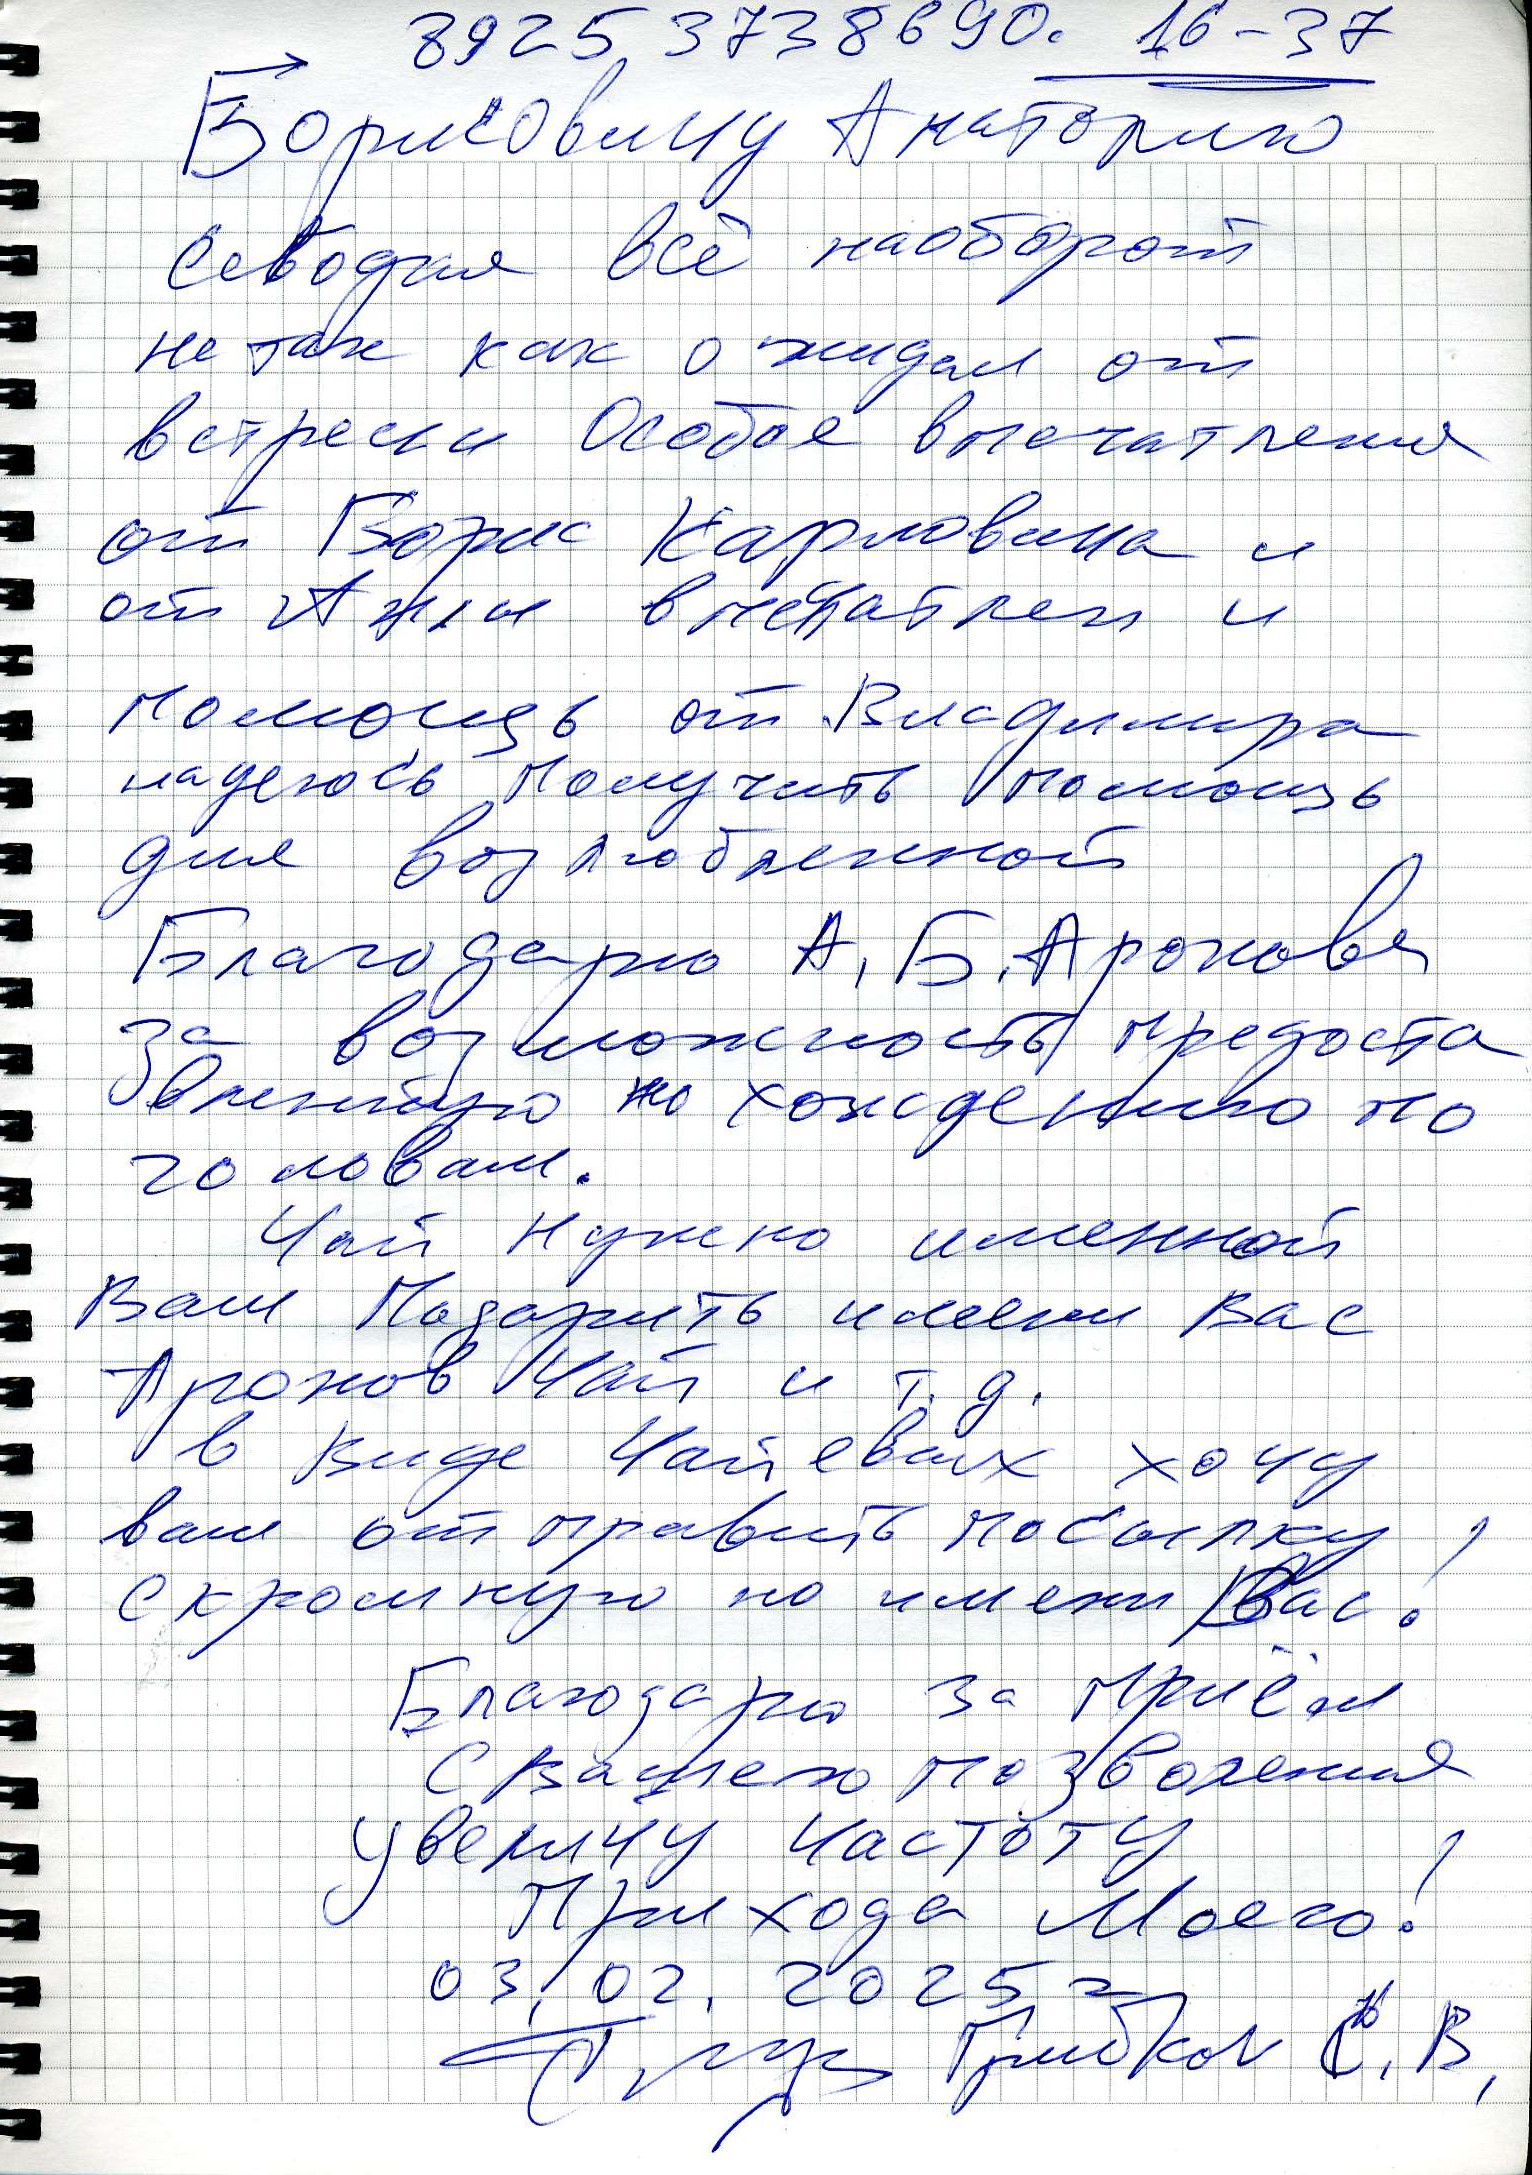 89253738690. 16-37
Борисовичу Анаторию
Севодня всё наоборот
не так как ожидал от
встречи Особое впечатления
от Борис Карловича и
от впечатлен и
помощь от Владимира
надеюсь получить помощь
для возлюбленной
Благодарю А.Б. Аронова
За возможность предоста
вленную по хождению по
головам.
Чай нужно именной
Вам Подарить имени Вас
Аронов Чай и т.д.
в виде Чаевых хочу
вам отправить посылку
скромную но имени Вас!
Благодарю за приём
С Вашего позволения
увеличу частоту
Прихода Моего!
03.02.2025 г
Грибков С.В.